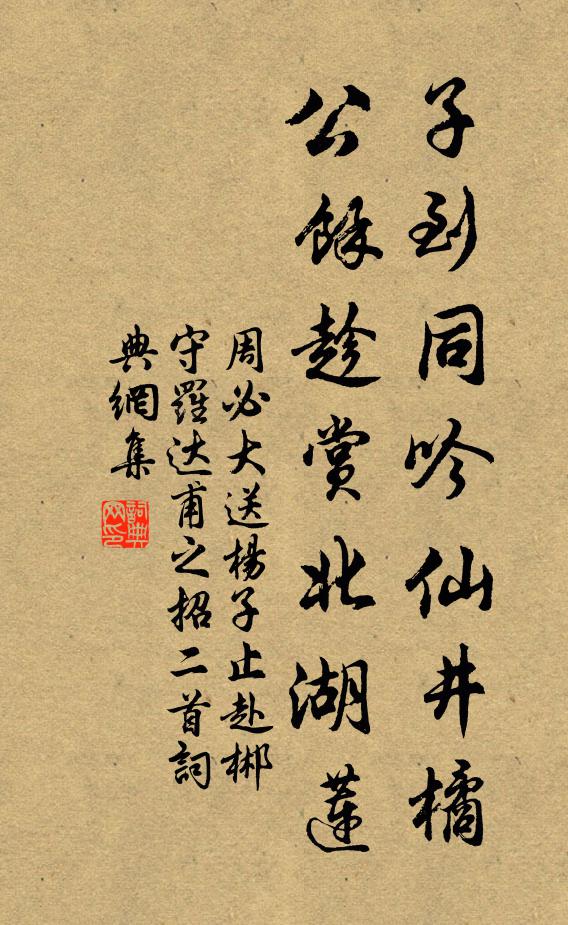 子到同吟仙井橘
公餘趁賞北湖蓮
周必大送楊子止赴郴
守羅达甫之招二首詞
典網集
詞典网印